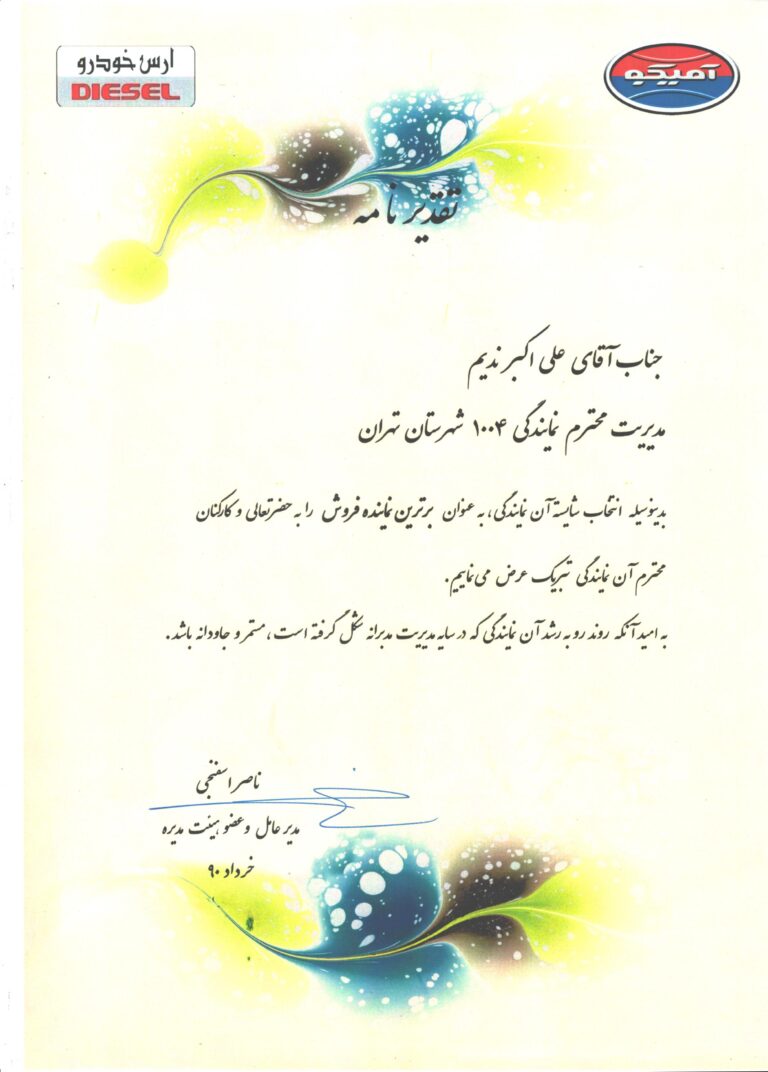 ارس خودرو
DIESEL
آمیکو
تقدیر نامه
جناب آقای علی اکبر ندیم
مدیریت محترم نمایندگی ۱۰۰۴ شهرستان تهران
بدینوسیله انتخاب شایسته آن نمایندگی، به عنوان برترین نماینده فروش را به حضرتعالی و کارکنان
محترم آن نمایندگی تبریک عرض می نماییم.
به امید آنکه روند رو به رشد آن نمایندگی که در سایه مدیریت مدبرانه شکل گرفته است، مستمر و جاودانه باشد.
ناصر اسفنجی
مدیر عامل و عضو هیئت مدیره
خرداد ۹۰